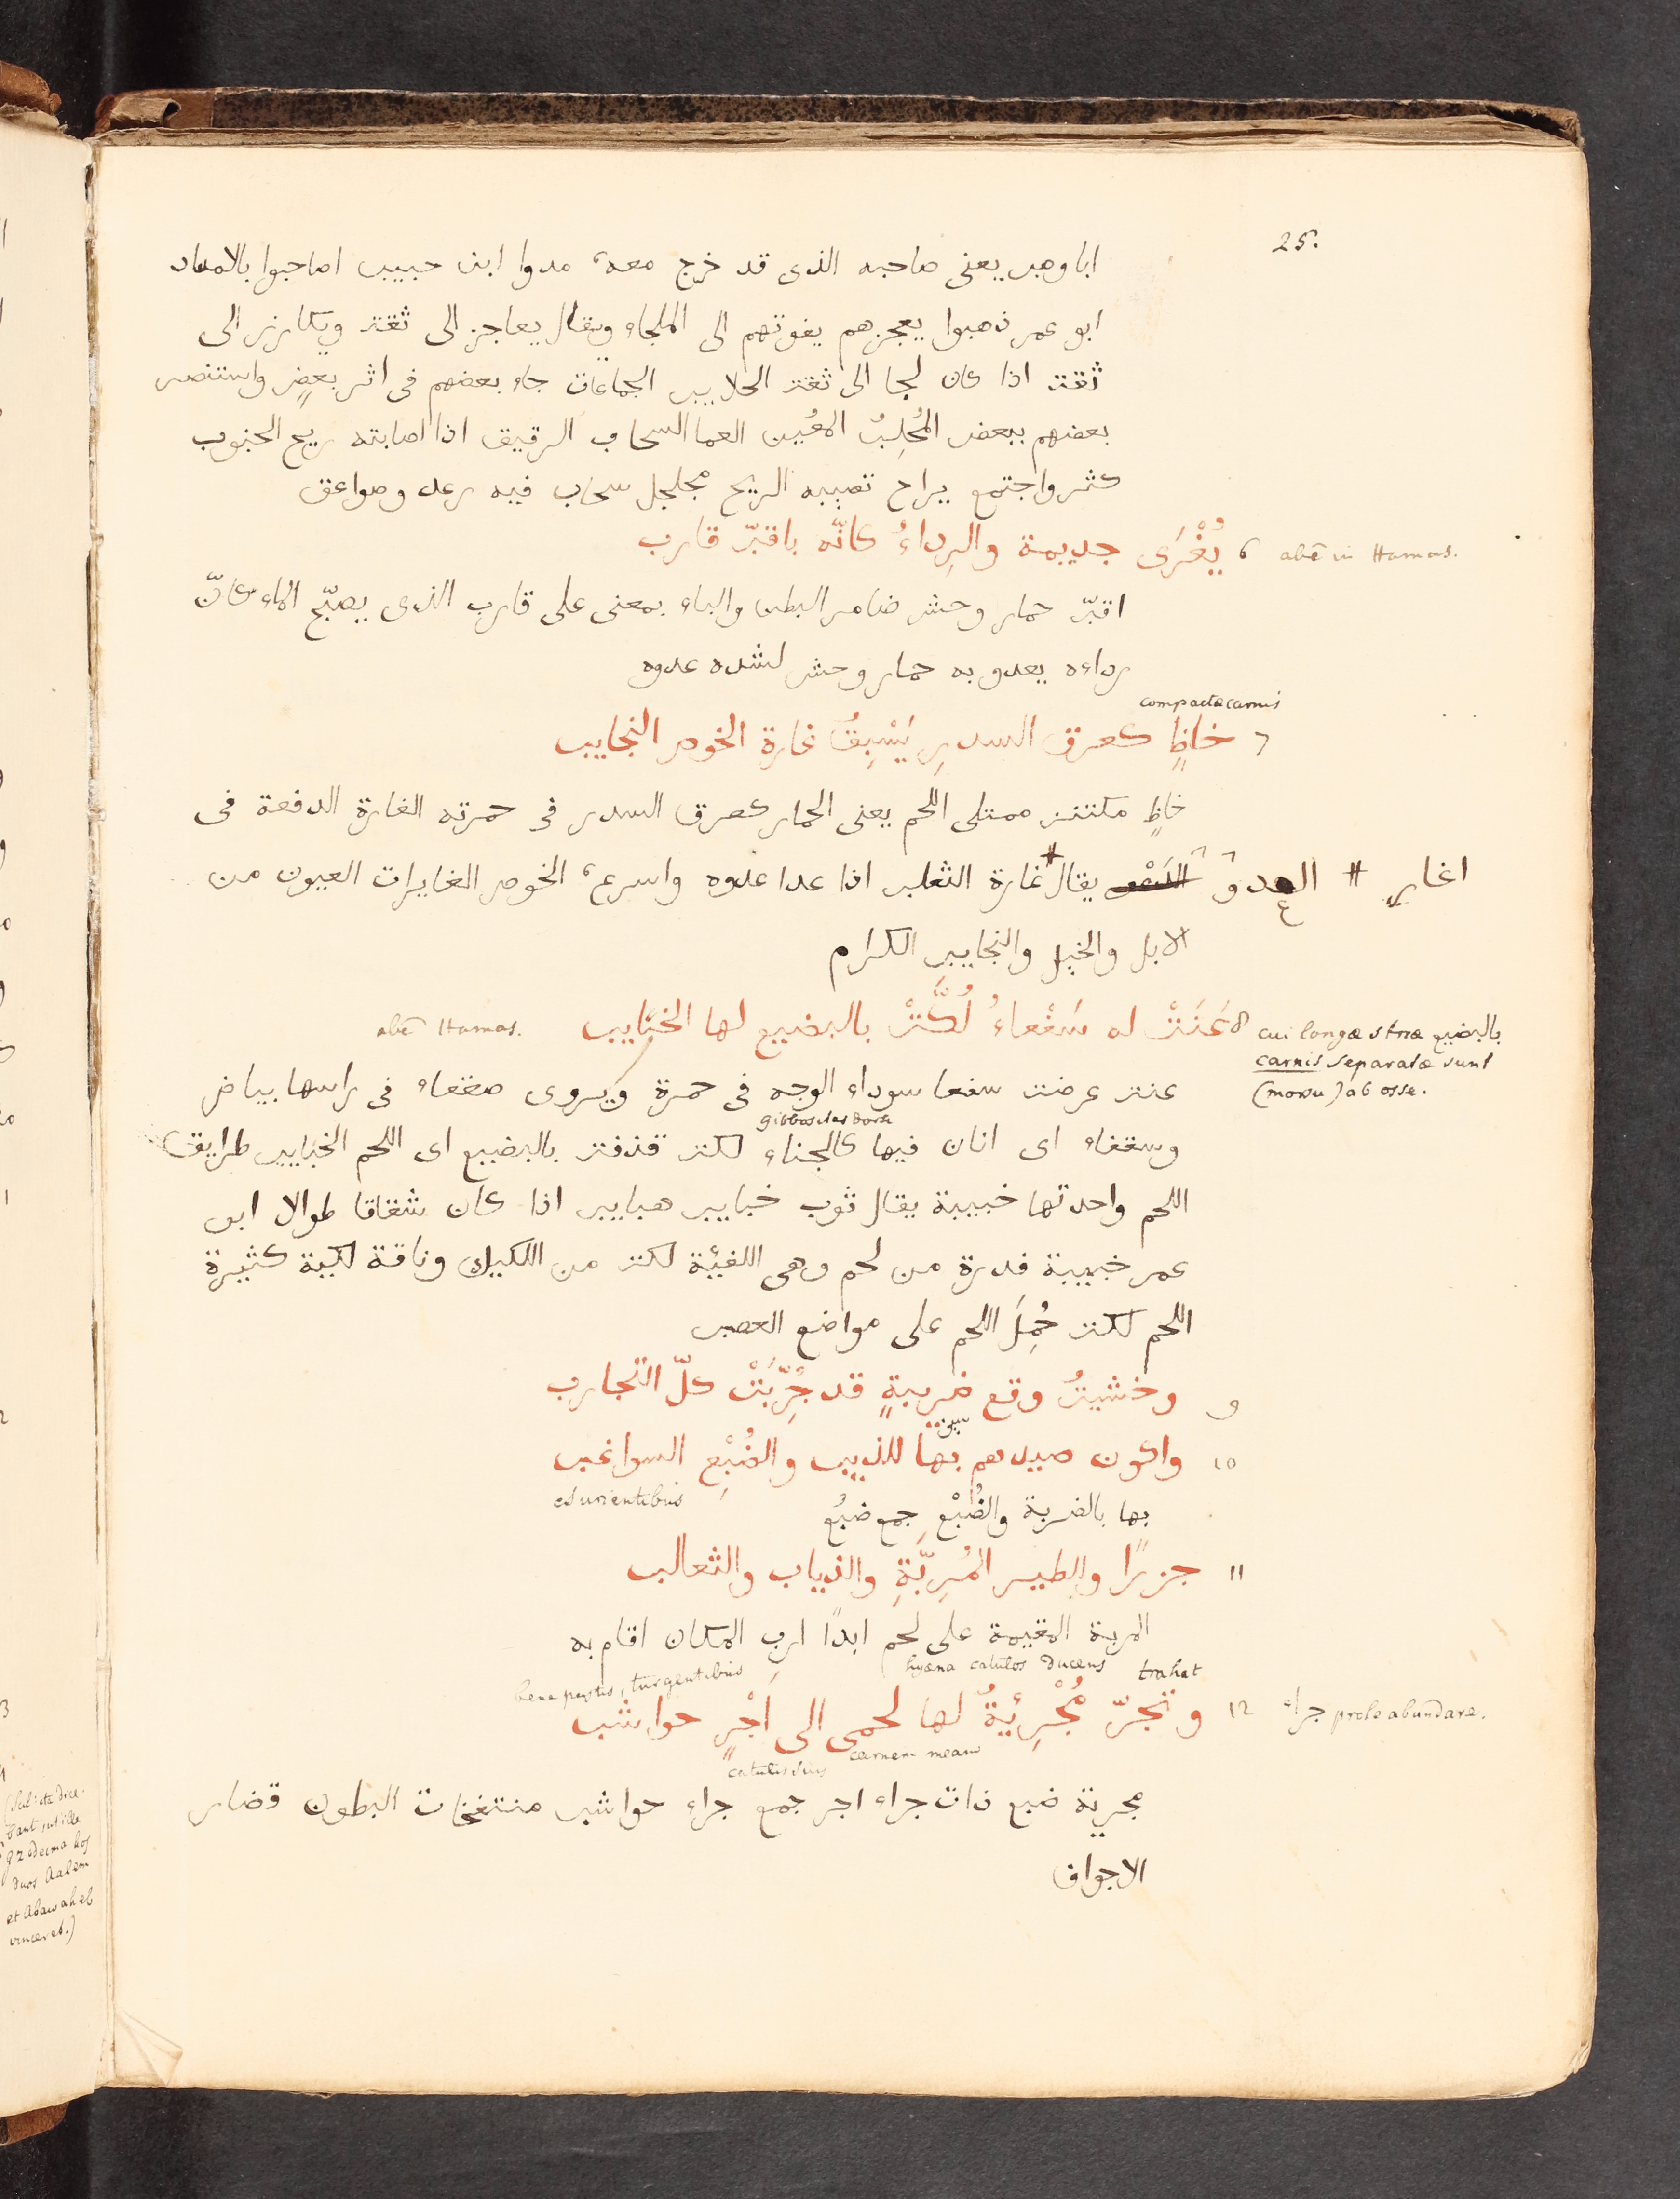 25.
ابا وهب يعنى صاحبه الذى قد خرج معه، مدوا ابن حبيب اصاحبوا بالامداد
ابو عمر ذهبوا يعجزهم يفوتهم الى الملجاء ويقال يعاجز الى ثقة ويكارز الى
ثقة اذا كان لجا الى ثقة الحلايب الجماعات جاء بعضهم فى اثر بعضٍ واستنصر
بعضهم ببعض المُحلِبُ المعُين العما السحاب الرقيق اذا اصابته ريح الجنوب
كثر واجتمع يراح تصيبه الريح مجلجل سحاب فيه رعد وصواعق
6 يُغْرَى جذيمة والرِداءُ كانّه باقبّ قارب
abē in Hamas.
اقبّ حمار وحش ضامر البطن والباء بمعنى على قارب الذى يصبّح الماء كانّ
رداءه يعدو به حمار وحش لشده عدوه
compacta carnis
7 خاظٍ كعرق السدرِ يَسْبِقُ غارة الخوص النجايب
خاظٍ مكتنز ممتلى اللحم يعنى الحمار كعرق السدر فى حمرته الغارة الدفعة فى
اغار # العدو يقال # غارة الثعلب اذا عدا عدوه واسرع، الخوص الغايرات العيون من
الابل والخيل والنجايب الكرام
8 عَنَتْ له سَفْعاءُ لُكَّتْ بالبضيع لها الخبايب
abē Hamas.
بالبضيع cui longæ striæ
carnis separatæ sunt
(morsu) ab osse.
عنت عرضت سفعا سوداء الوجه فى حمرة ويروى صقعاء فى راسها بياض
gibbositas dorsi
وسقفاء اى اتان فيها كالجناء لكت قذفت بالبضيع اى اللحم الخبايب طرايق
اللحم واحدتها خبيبة يقال ثوب خبايب هبايب اذا كان شقاقا طوالا ابو
عمر خبيبة فدرة من لحم وهى اللفئية لكت من اللكيك وناقة لكية كثيرة
اللحم لكت حُمِلَ اللحم على مواضع العصب
9 وخشيتُ وقع ضريبةٍ قد جُرِّبَتْ كلّ التجارب
10 واكون صيدهم بها للذيب والضُبْعِ السواغب
esurientibus
بها بالضربة والضُبْع جمع ضبُع
11 جزرًا وللطير المُرِبَّةِ والذياب والثعالب
المربة المقيمة على لحم ابدًا ارب المكان اقام به
bene pastis, turgentibus
hyæna catulos ducens
trahet
12 وتجرّ مُجْرِئيةٌ لها لحمى الى اَجْرٍ حواشب
جراء prole abundare.
carnem meam
catulis suis
مجرية ضبع ذات جراء اجر جمع جراء حواشب منتفخات البطون قصار
الاجواف